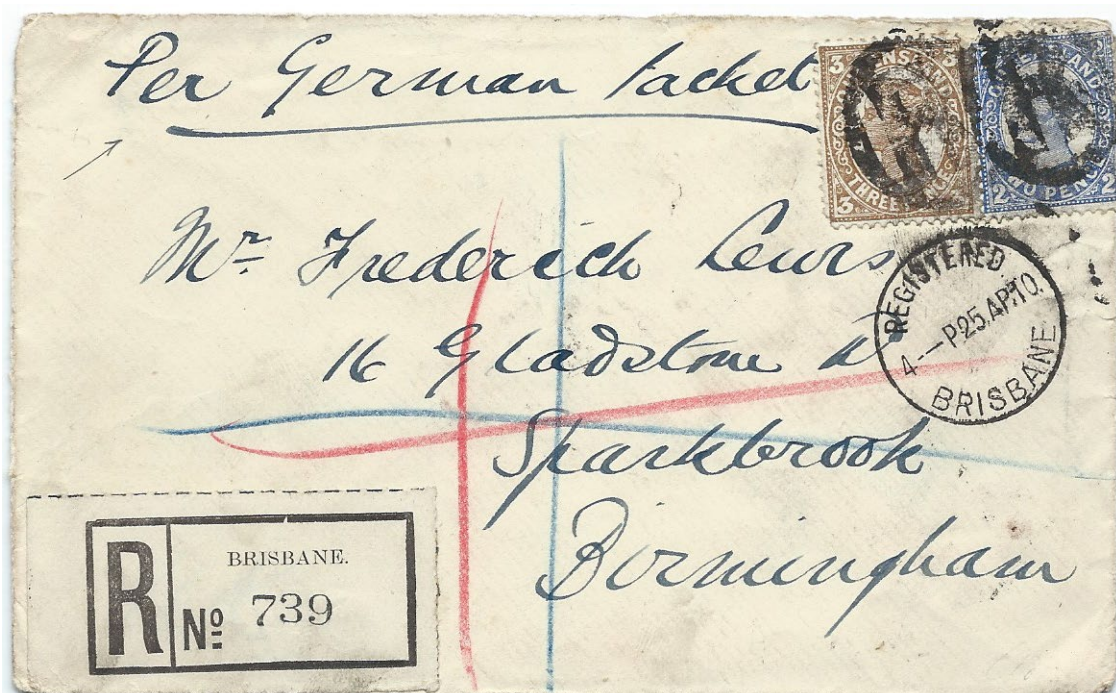 Per German Packet
3 3
QUEENSLAND
THREE PENCE
3
QUEENSLAND
TWO PENCE
2 2
Mr. Frederick Lewis
16 Gladstone Rd
Sparkbrook
Birmingham
REGISTERED
4--P25.AP.10.
BRISBANE
R
BRISBANE.
No 739